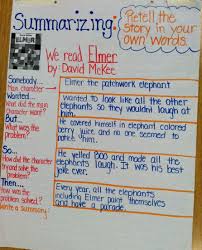 Summarizing:
Retell the
story in your
own words.
ELMER
We read Elmer
by: David McKee
Somebody...
Main character
Elmer the patchwork elephant
Wanted...
What did the main
character want?
Wanted to look like all the other
elephants so they wouldn't laugh at
him.
But...
What was the
problem?
He covered himself in elephant colored
berry juice and no one seemed to
notice him.
So...
How did the character
try and solve the
problem?
He yelled BOO and made all the
elephants laugh. It was his best
joke ever.
Then...
How was the
problem solved?
Every year, all the elephants
including Elmer paint themselves
and have a parade.
Write a summary!